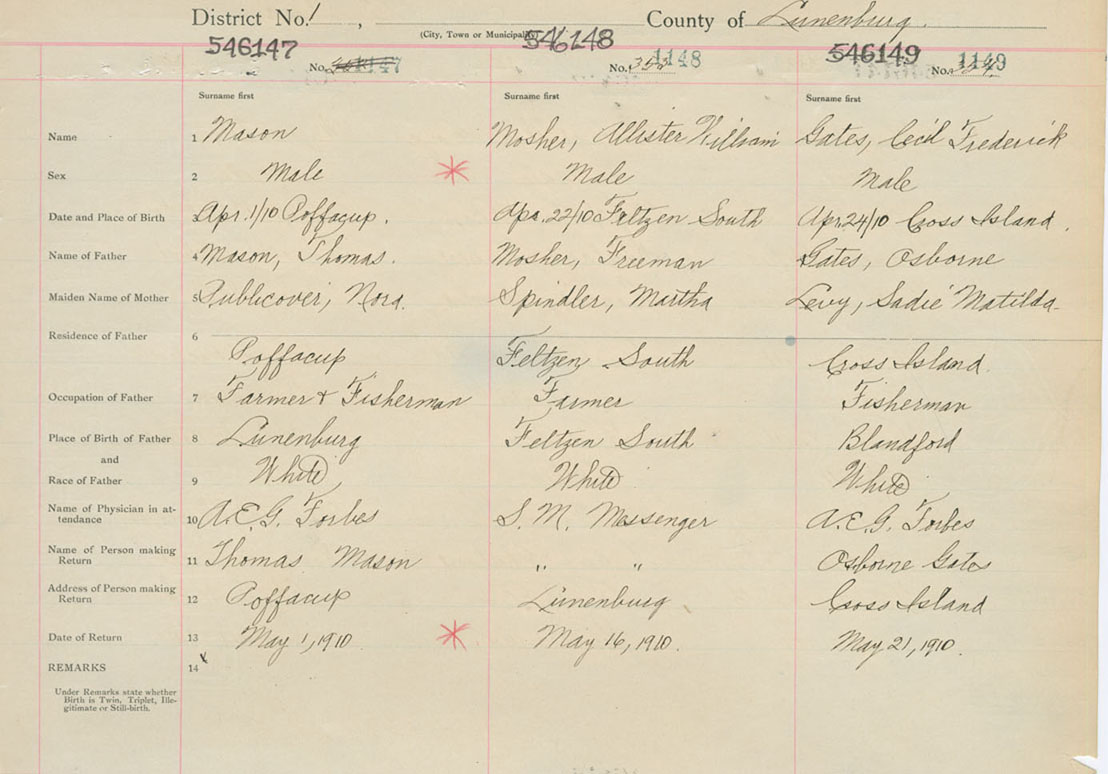 District No. 1 , County of Lunenburg.
(City, Town or Municipality)
546147 546148 546149
No. 1147 No. 1148 No. 1149
Surname first Surname first Surname first
Name 1 Mason Mosher, Allister William Gates, Cecil Frederick
Sex 2 Male Male Male
Date and Place of Birth 3 Apr. 1/10 Poffacup. Apr. 22/10 Feltzen South Apr. 24/10 Cross Island.
Name of Father 4 Mason, Thomas. Mosher, Freeman Gates, Osborne
Maiden Name of Mother 5 Publicover, Nora. Spindler, Martha Levy, Sadie Matilda
Residence of Father 6
Poffacup Feltzen South Cross Island.
Occupation of Father 7 Farmer & Fisherman Farmer Fisherman
Place of Birth of Father 8 Lunenburg Feltzen South Blandford
and
Race of Father 9 White White White
Name of Physician in at-
tendance 10 A.E.G. Forbes S. M. Messenger A.E.G. Forbes
Name of Person making
Return 11 Thomas Mason " " Osborne Gates
Address of Person making
Return 12 Poffacup Lunenburg Cross Island
Date of Return 13 May 1, 1910 May 16, 1910. May 21, 1910.
REMARKS 14
Under Remarks state whether
Birth is Twin, Triplet, Ille-
gitimate or Still-birth.